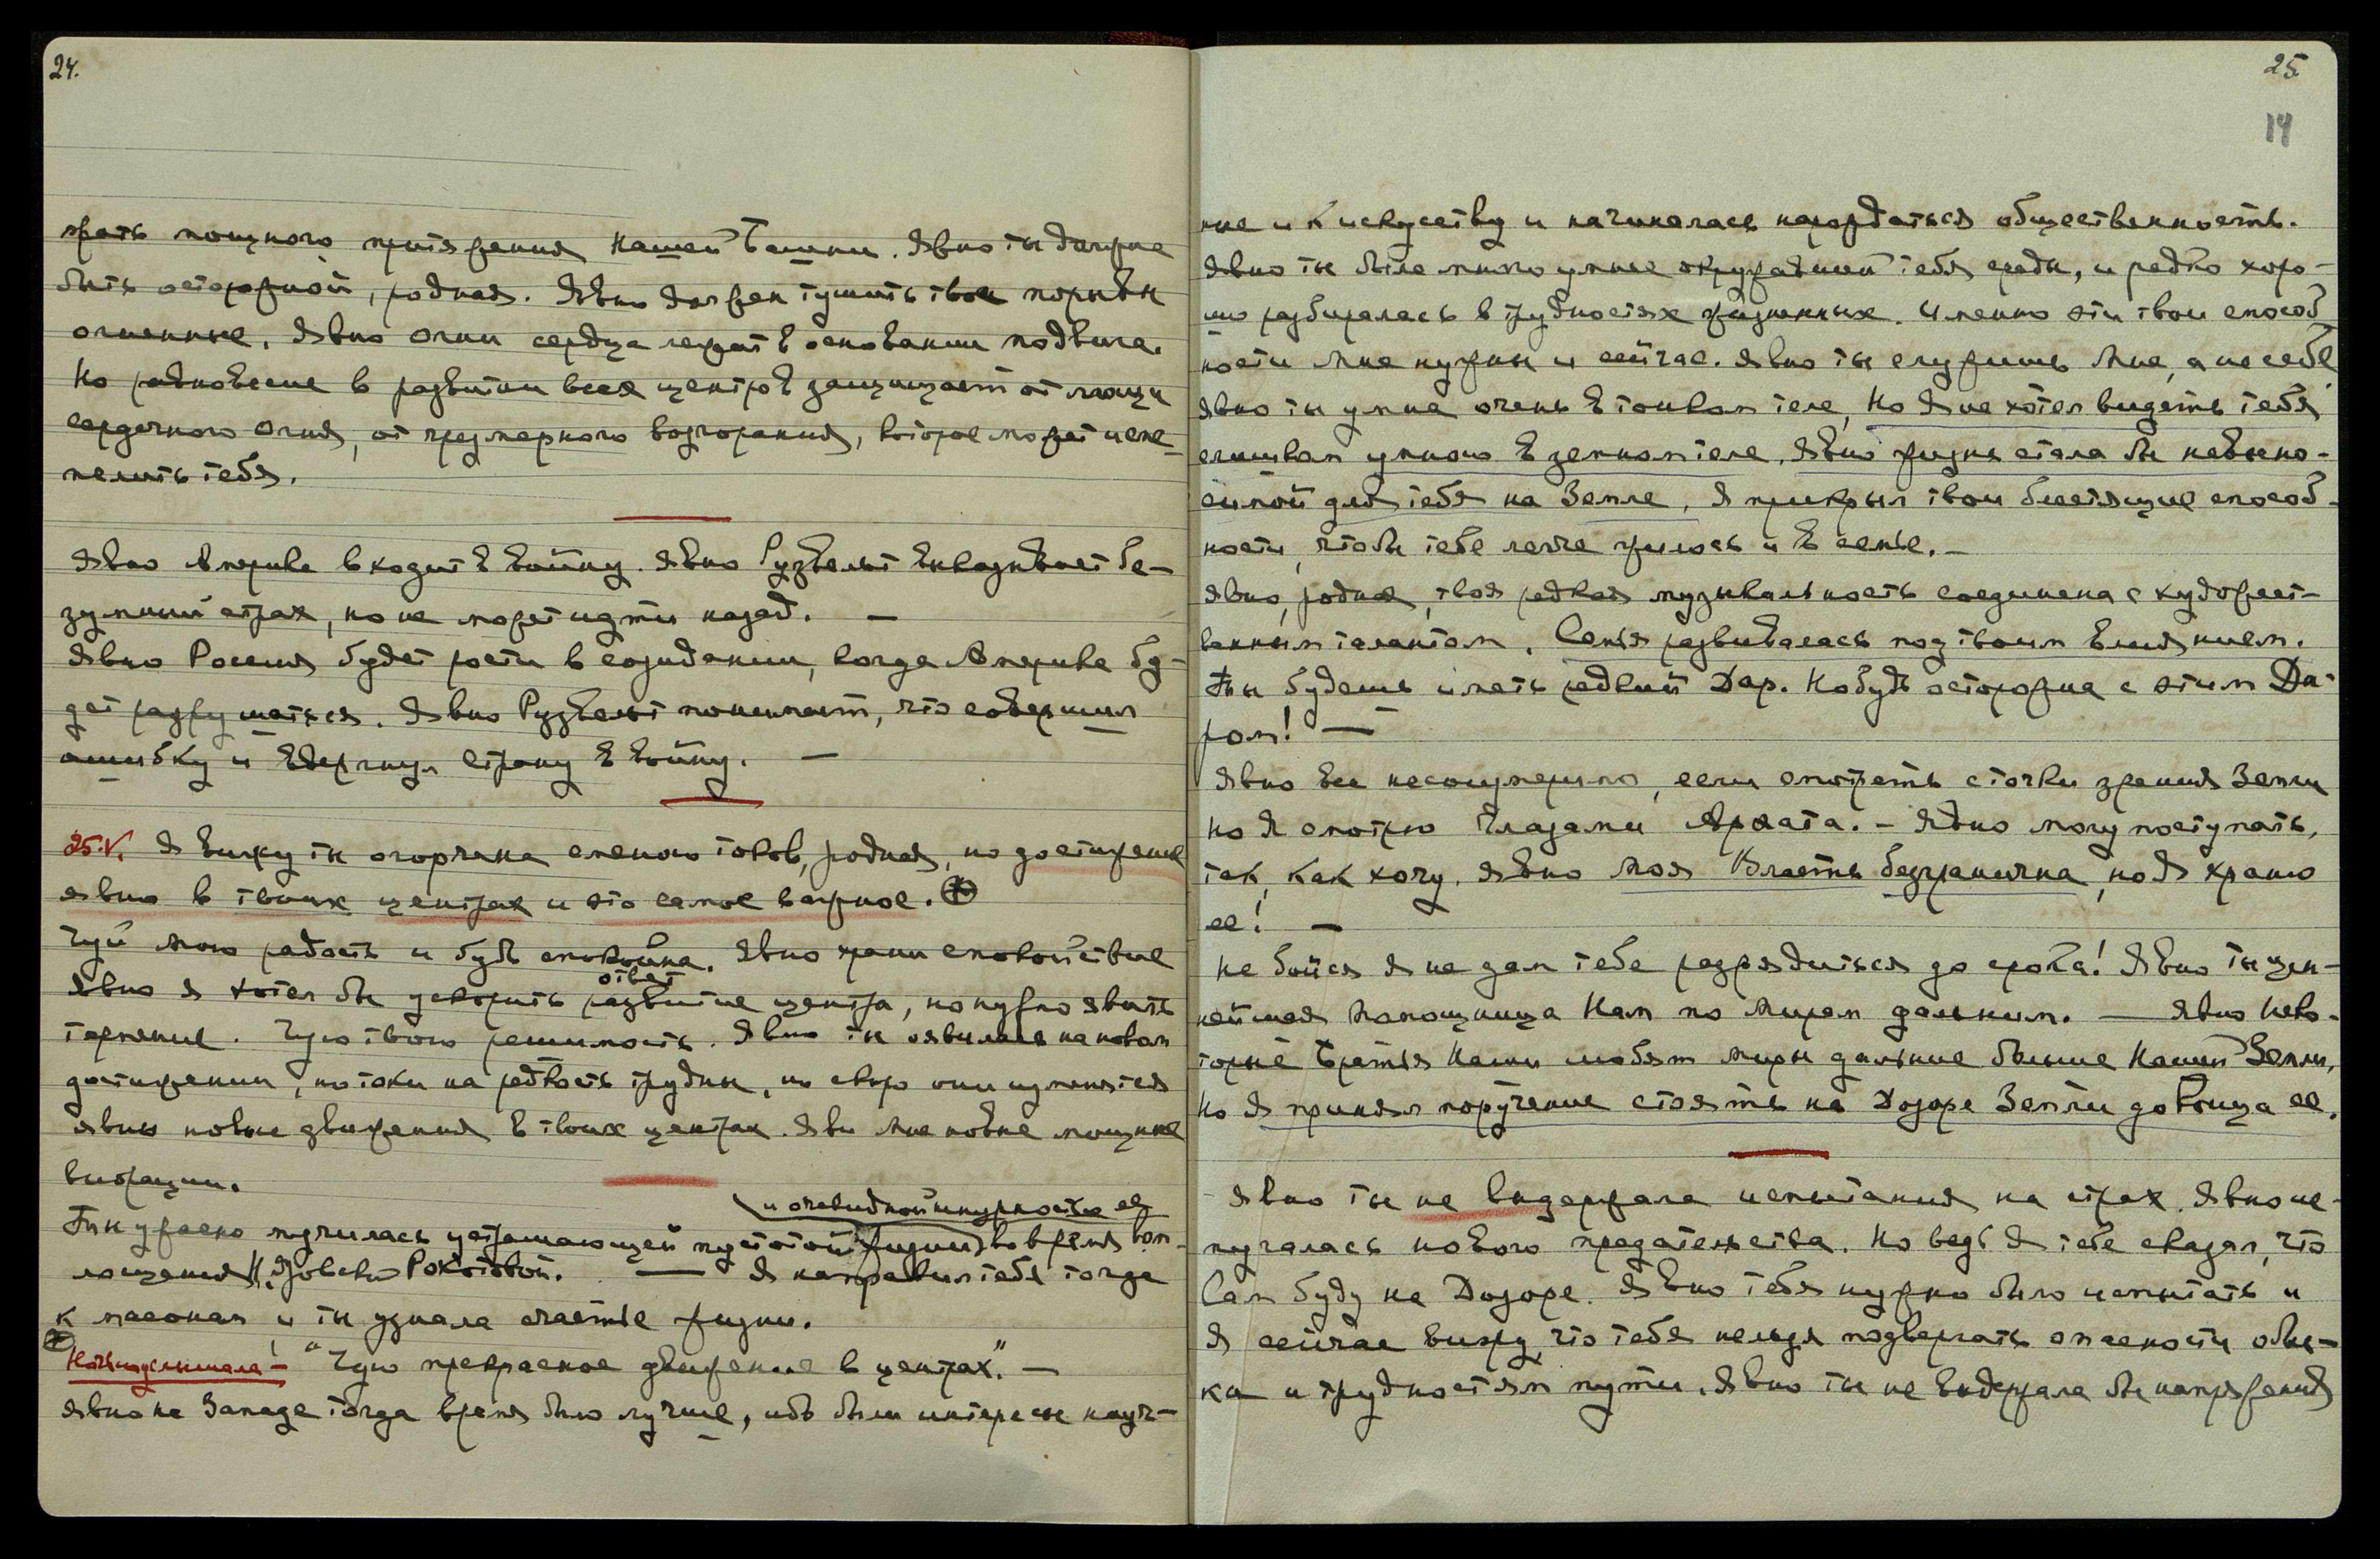 24.
мощного притяжения Нашей Башни. Явно ты должна
быть осторожной, родная. Явно должен тушить твои порывы
огненные. Явно огни сердца лежат в основании подвига.
Но равновесие в развитии всех центров защищает от мощи
сердечного Огня, от чрезмерного возгорания, которое может испе-
пелить тебя.
Явно Америка входит в войну. Явно Рузвельт выказывает бе-
зумный страх, но не может идти назад. —
Явно Россия будет расти в созидании, когда Америка бу-
дет разрушаться. Явно Рузвельт понимает, что совершил
ошибку и вдернул страну в войну. —
25.V. Я вижу ты огорчена сменою токов, родная, но достижение
явно в твоих центрах и это самое важное. ⊕
Чуй мою радость и будь спокойна. Явно храни спокойствие
ответ
Явно я хотел бы ускорить развитие центра, но нужно явить
терпение. Чую твою решимость. Явно ты явилась на новом
достижении, но токи на редкость трудны, но скоро они изменятся
явны новые движения в твоих центрах. Яви мне новые мощные
вибрации.
и очевидной ненужностью ее
Ты ужасно мучилась устрашающей пустотой жизни во время вопл-
лощения Н. Яровской Рокотовой. — Я направил тебя тогда
к масонам и ты узнала счастье жизни.
⊕ Ночью услышала – "Чую прекрасное движение в центрах". —
Явно на Западе тогда время было лучше, ибо были интересы науч-
25
14
ные и к искусству и начиналась нарождаться общественность.
Явно ты была много умнее окружавшей тебя среды, и редко хоро-
шо разбиралась в трудностях жизненных. Именно эти твои способ
ности Мне нужны и сейчас. Явно ты служишь Мне, а не себе,
Явно ты умна очень в тонком теле, Но Я не хотел видеть тебя
слишком умною в земном теле, Явно жизнь стала бы невыно-
симой для тебя на Земле, Я прикрыл твои блестящие способ-
ности, чтобы тебе легче жилось и в семье. —
Явно, родная, твоя редкая музыкальность соединена с художест-
венным талантом. Семья развивалась под твоим влиянием.
Ты будешь иметь редкий Дар. Но будь осторожна с этим Да-
ром! —
Явно все несоизмеримо, если смотреть с точки зрения Земли
но Я смотрю глазами Архата. – Явно могу поступать,
так, как хочу. Явно Моя Власть безгранична, но Я храню
ее! —
Не бойся Я не дам тебе разрядиться до срока! Явно ты цен-
нейшая помощница Нам по Мирам дальним. — Явно неко-
торые Братья Наши любят миры дальние больше Нашей Земли,
Но Я принял поручение стоять на Дозоре Земли до конца ее.
Явно ты не выдержала испытания на страх. Явно ис-
пугалась нового предательства. Но ведь Я тебе сказал, что
Сам буду на Дозоре. Явно тебя нужно было испытать и
Я сейчас вижу, что тебя нельзя подвергать опасности
и трудностям пути. Явно ты не выдержала бы напряжения